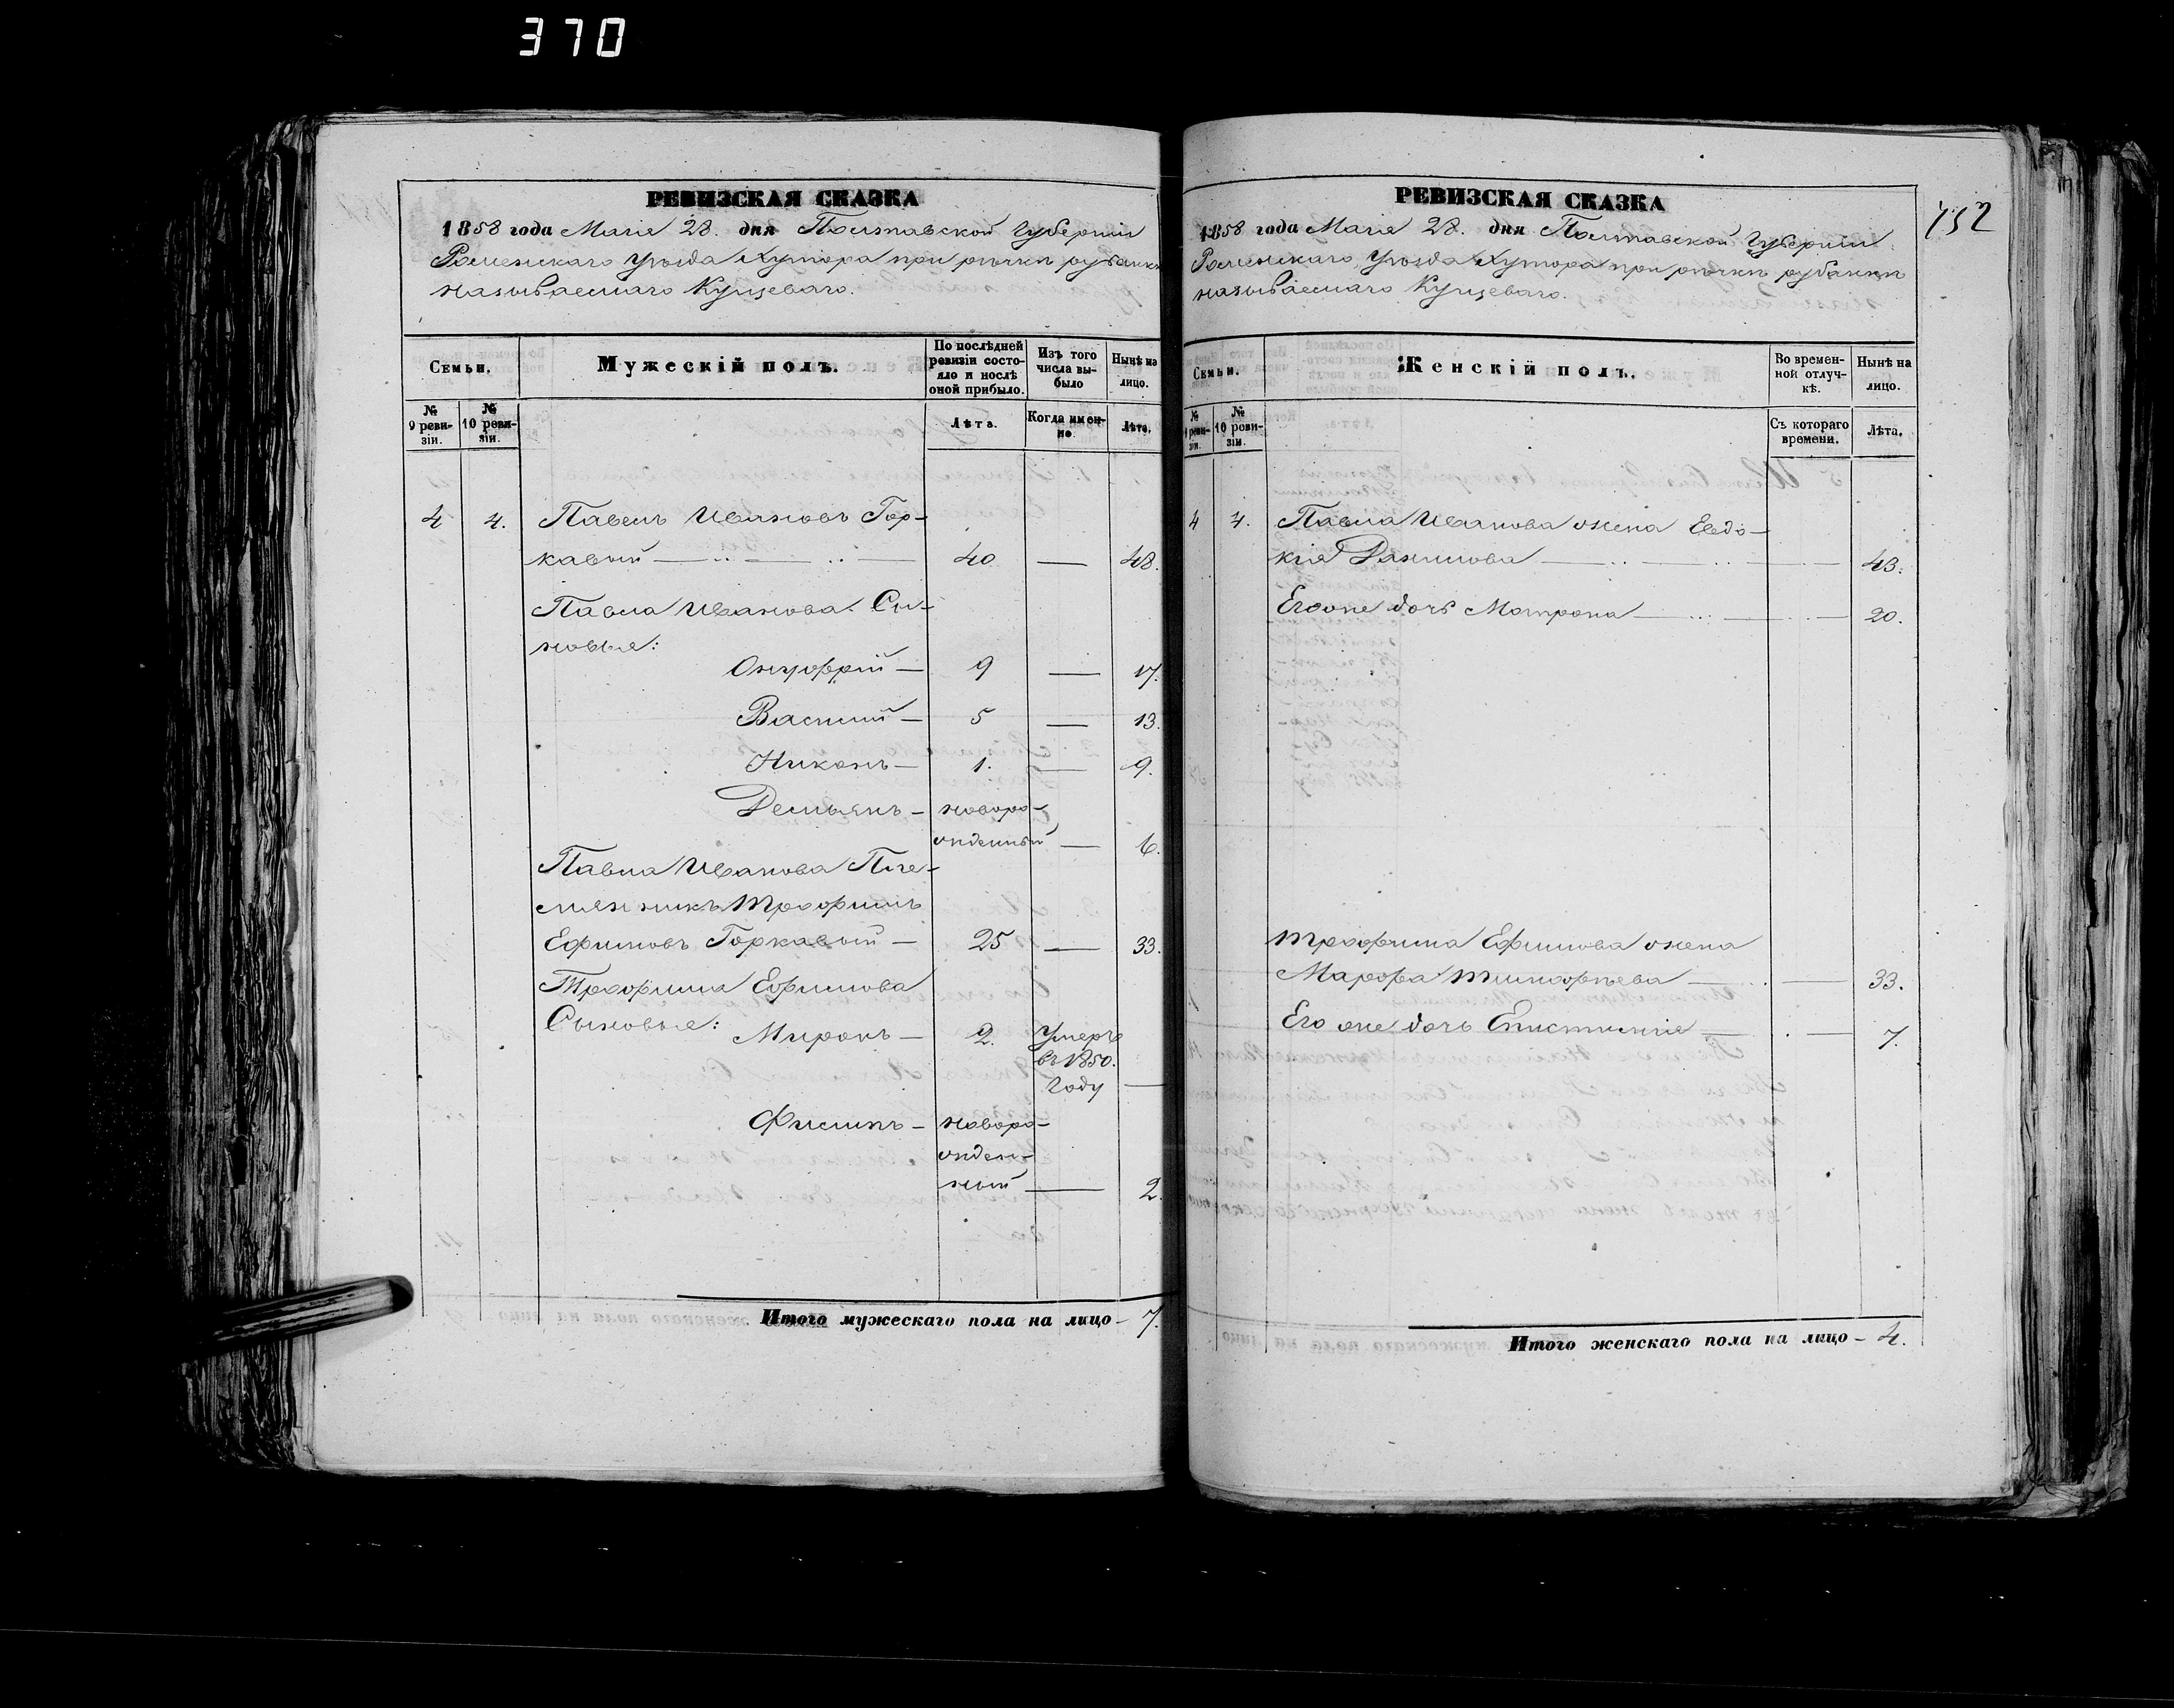 370
РЕВИЗСКАЯ СКАЗКА
1858 года Маія 28. дня Полтавской Губерніи
Роменскаго Уѣзда Хутора при рѣчкѣ рубанкѣ
называемаго Кунцеваго.
Семьи.
№ 9 ревизіи.
№ 10 ревизіи.
Мужескій полъ.
По послѣдней ревизіи состояло и послѣ оной прибыло.
Лѣта.
Изъ того числа выбыло
Когда именно.
Нынѣ на лицо.
Лѣта.
4 4. Павелъ Ивановъ Гор-
кавый — 40 — 48.
Павла Иванова Сы-
новья:
Онуфрій — 9 — 17.
Василій — 5 — 13.
Никонъ — 1. — 9.
Демьянъ — новоро-
жденный — 6.
Павла Иванова Пле-
мянникъ Трофимъ
Ефимовъ Горкавый — 25 — 33.
Трофима Ефимова
Сыновья: Миронъ — 2. Умеръ
въ 1850.
году —
Филипъ — новоро-
жден-
ный — 2.
Итого мужескаго пола на лицо — 7.
РЕВИЗСКАЯ СКАЗКА
752
1858 года Маія 28. дня Полтавской Губерніи
Роменскаго Уѣзда Хутора при рѣчкѣ рубанкѣ
называемаго Кунцеваго.
Семьи.
№ 9 ревизіи.
№ 10 ревизіи.
Женскій полъ.
Во временной отлучкѣ.
Съ котораго времени.
Нынѣ на лицо.
Лѣта.
4 4. Павла Иванова жена Евдо-
кія Данилова — 43.
Его же дочь Матрона — 20.
Трофима Ефимова жена
Марфа Тимофѣева — 33.
Его же дочь Епистимія — 7.
Итого женскаго пола на лицо — 4.